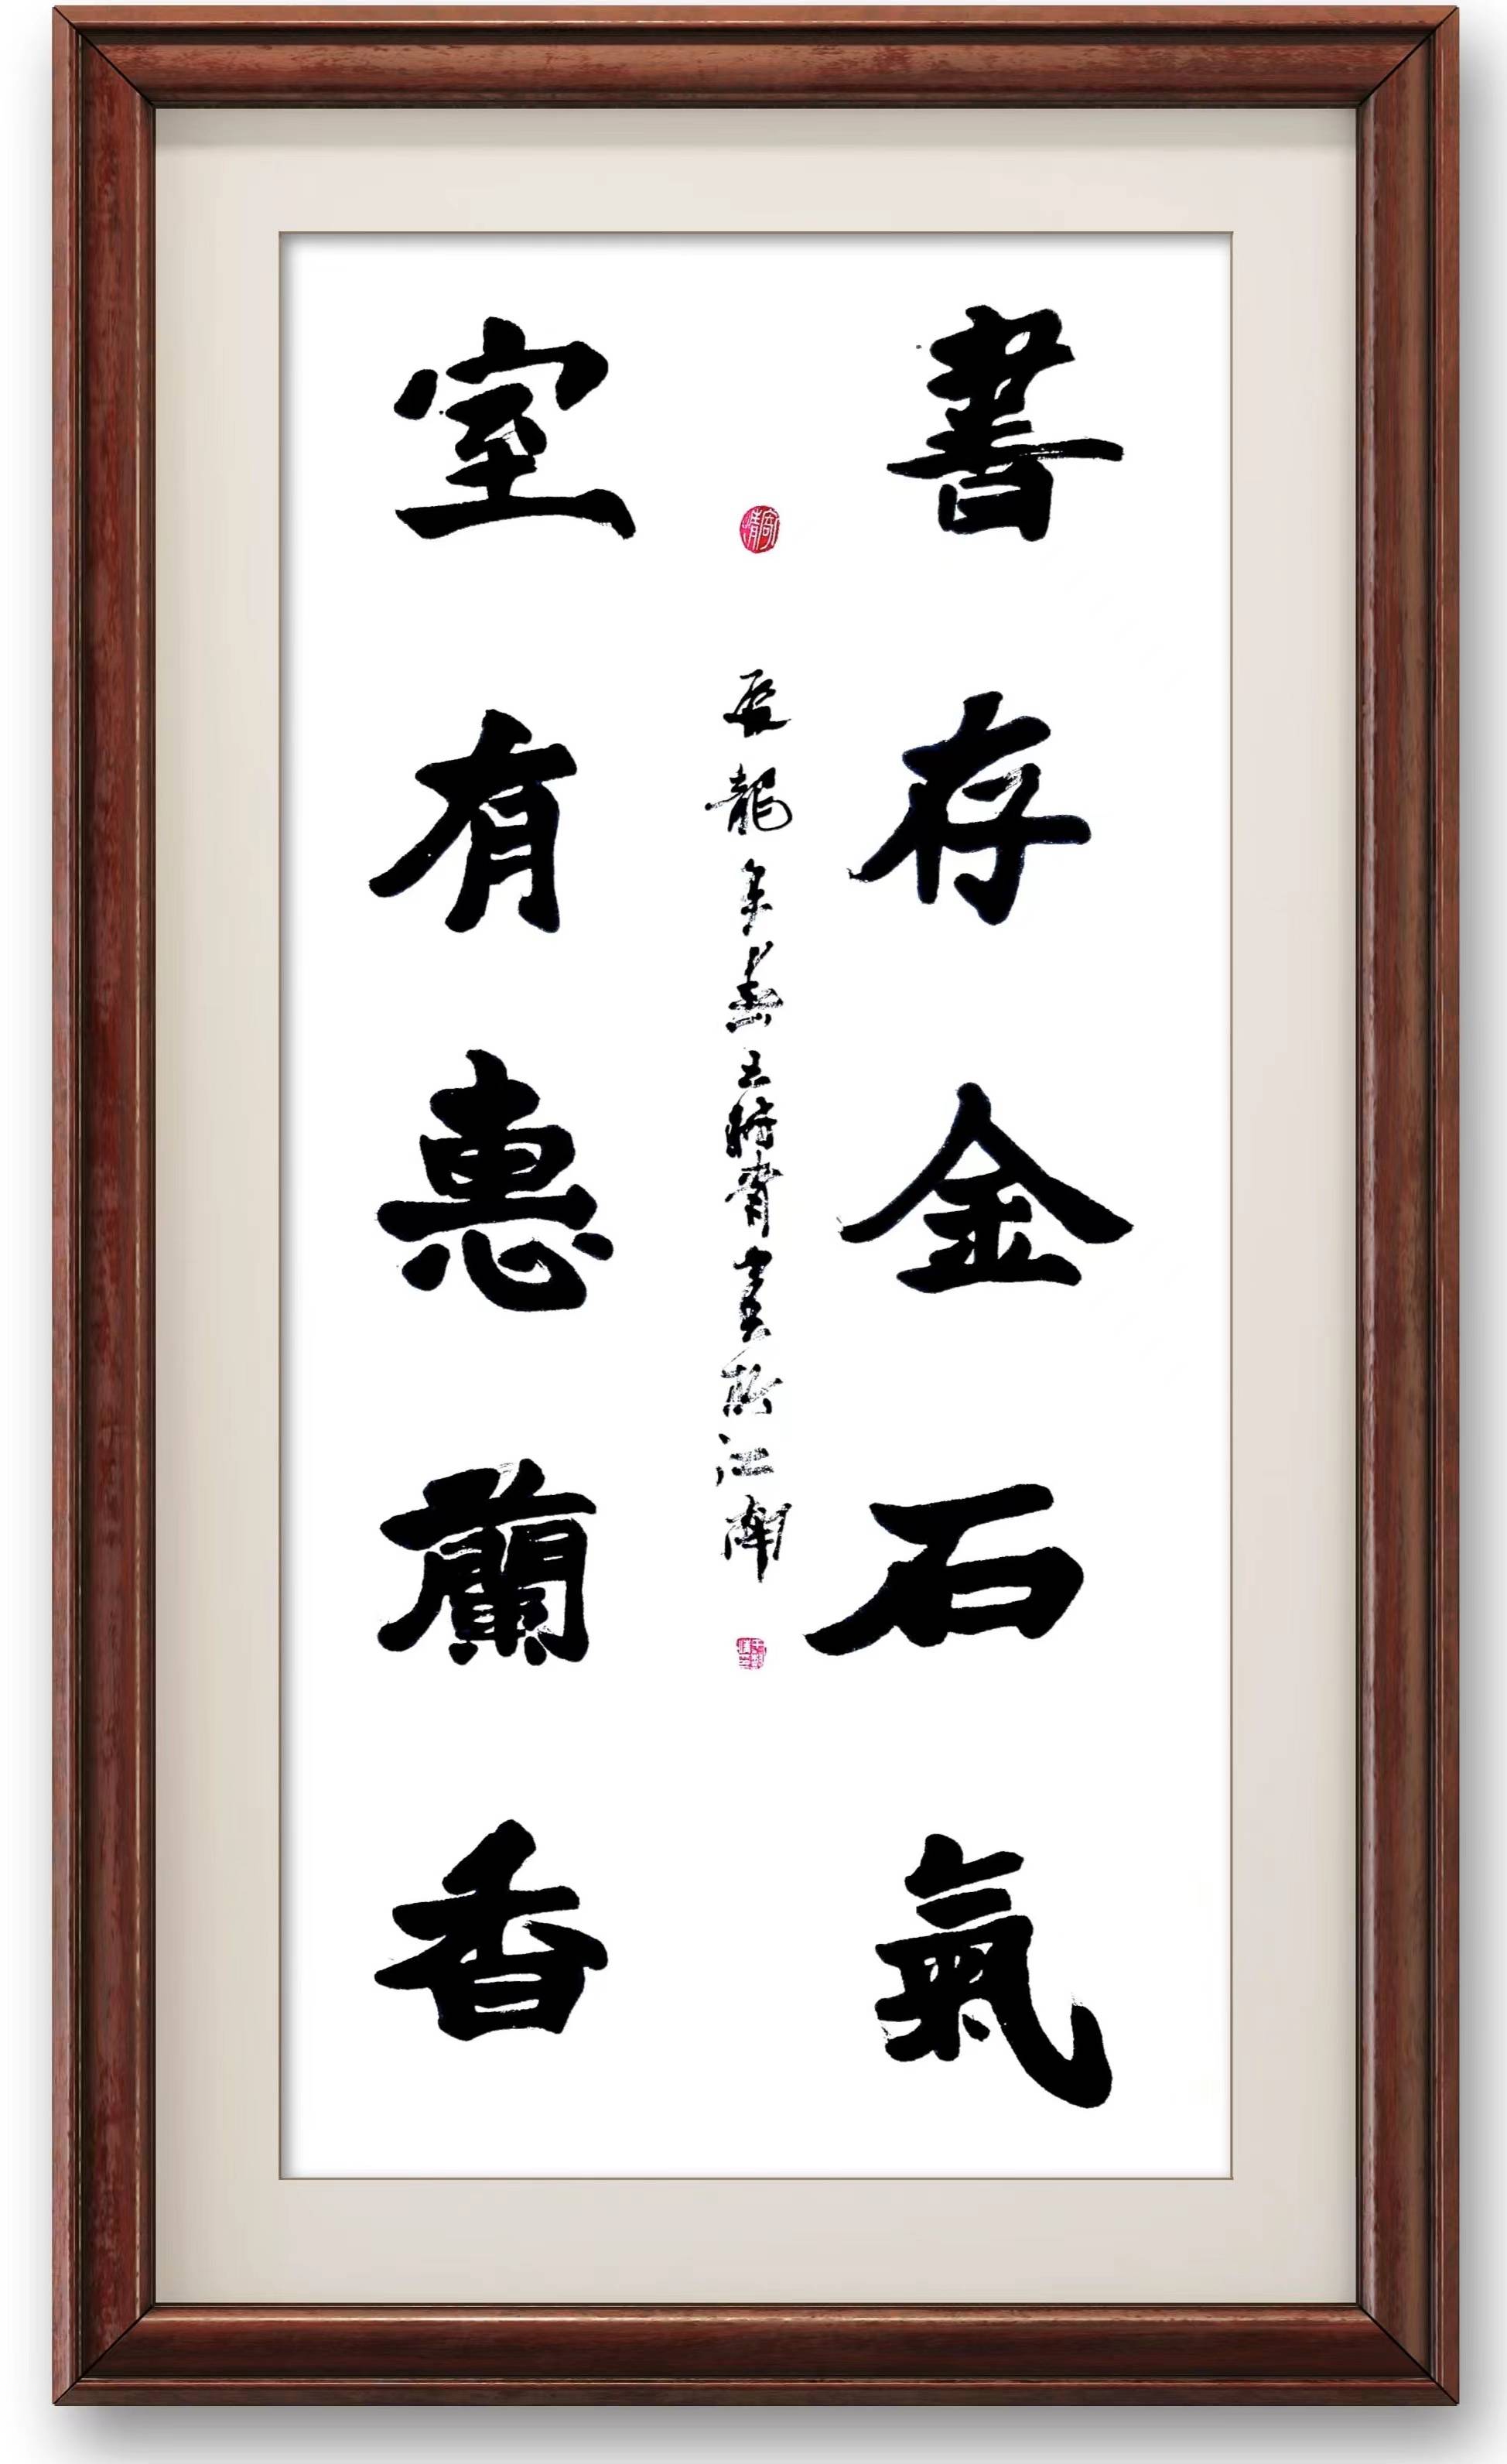 書存金石氣
室有惠蘭香
辰龍年春王時育書於江南